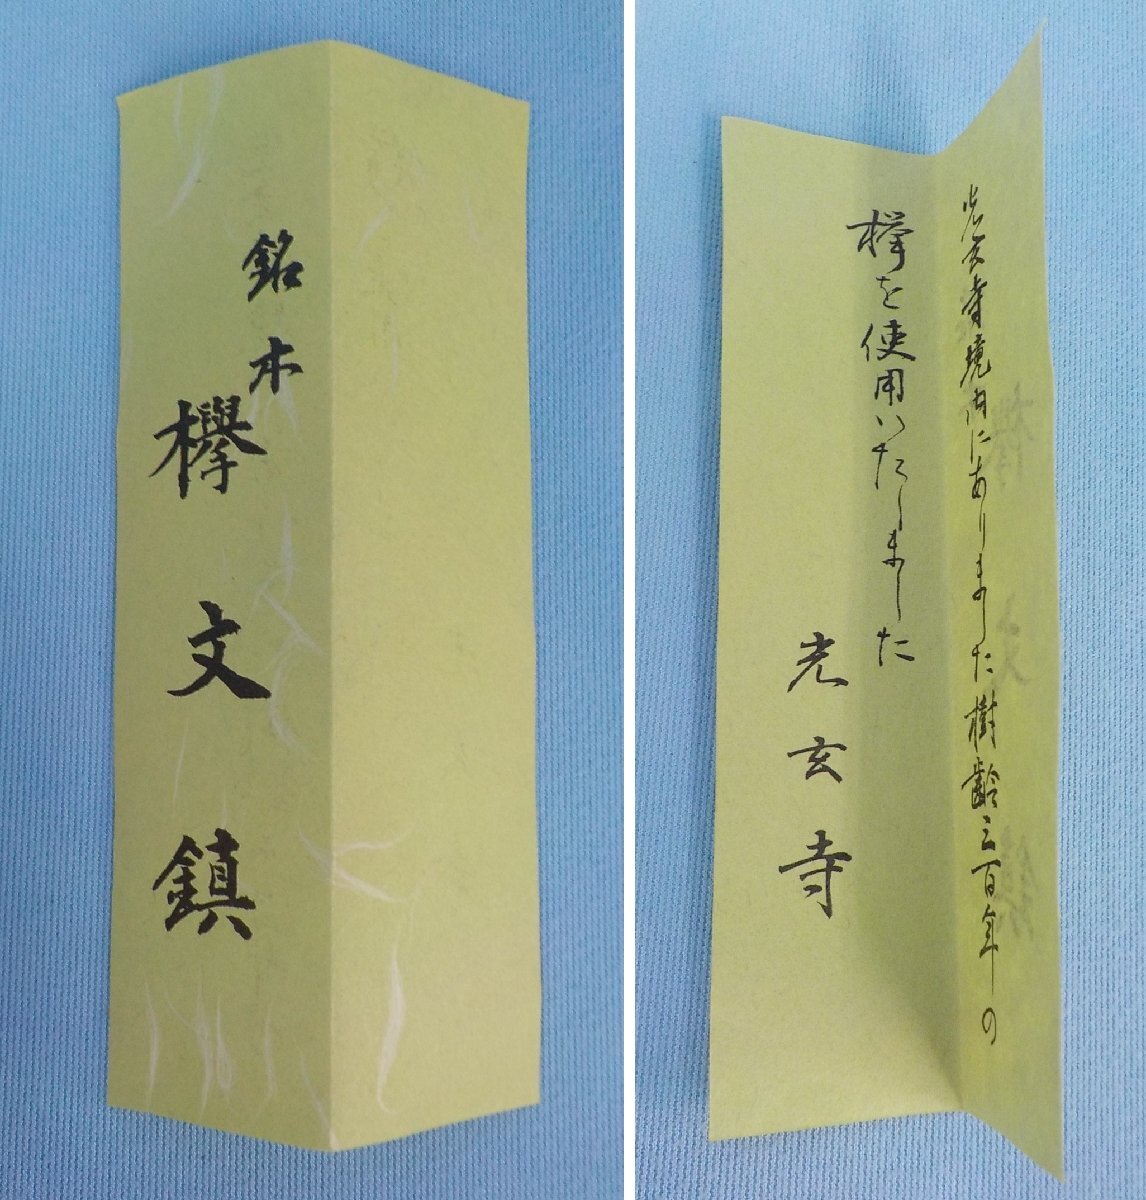 銘木
欅文鎮
光玄寺境内にありました樹齢三百年の
欅を使用いたしました
光玄寺